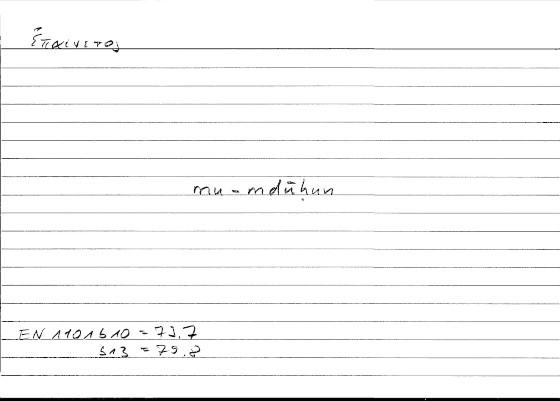 ἐπαινετος
mu-mdūḥun
EN 1101b10 = 73.7
b13 = 79.8